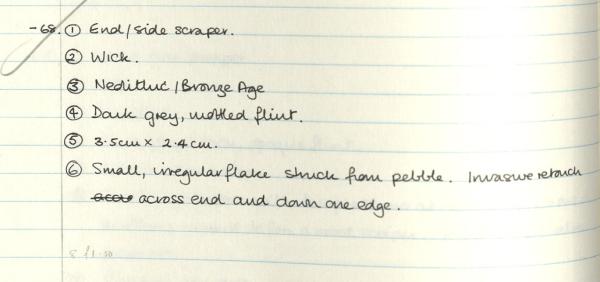 -68. ① End/side scraper.
② Wick.
③ Neolithic/Bronze Age
④ Dark grey, mottled flint.
⑤ 3.5cm x 2.4cm.
⑥ Small, irregular flake struck from pebble. Invasive retouch
across end and down one edge.